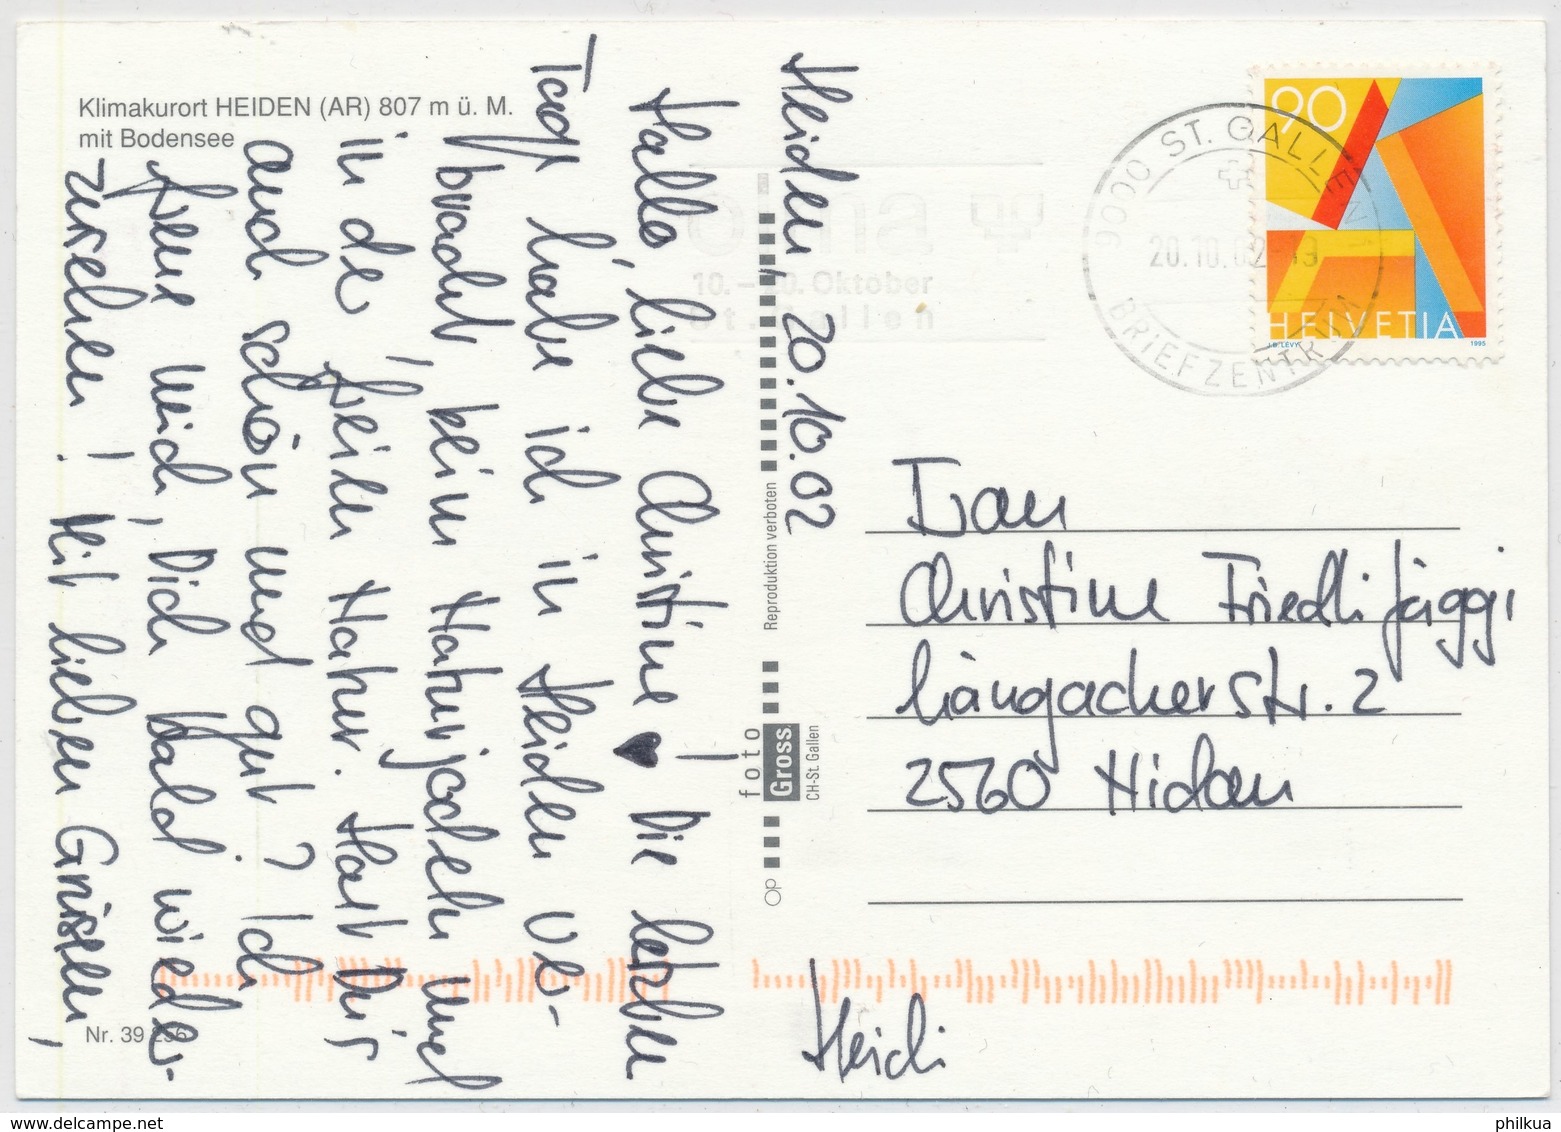 Klimakurort HEIDEN (AR) 807 m ü. M.
mit Bodensee
Heiden, 20.10.02
Hallo, liebe Christine ♥ Die letzten
Tage habe ich in Heiden ve-
bracht, beim Naturjodeln und
in de freien Natur. Hast Du's
auch schön und gut? Ich
freue mich, Dich bald wieder-
zusehen! Mit lieben Grüssen,
Heidi
Nr. 39 256
olma
10.–20. Oktober
St. Gallen
9000 ST. GALLEN 1
20.10.02-19
BRIEFZENTRUM
90
HELVETIA
J.B. LÉVY
1995
Reproduktion verboten
foto
Gross
CH-St. Gallen
OP
Frau
Christine Friedli Jäggi
Längackerstr. 2
2560 Nidau
philkua